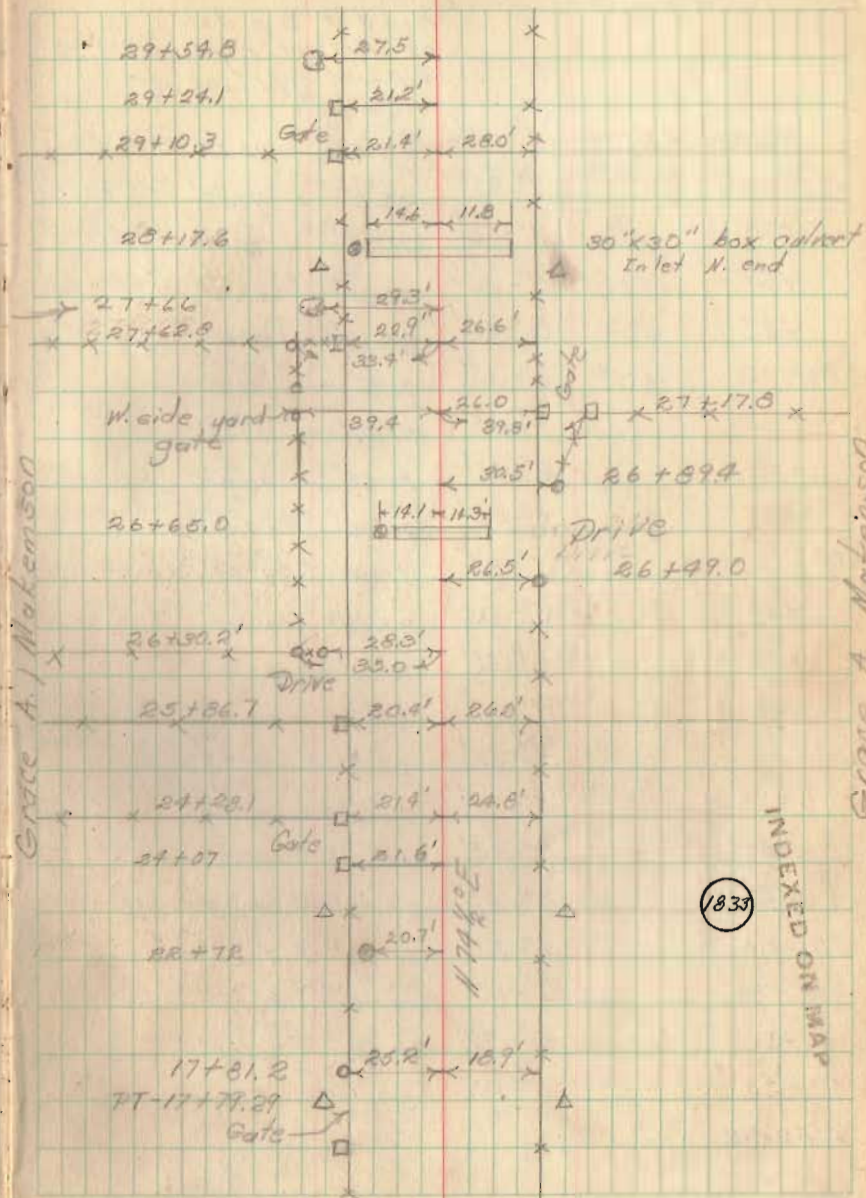 29+54.8 27.5
29+24.1 21.2'
29+10.3 Gate 21.4' 28.0'
14.6 11.8
28+17.6 30"x30" box culvert
Inlet N. end
27+66 29.3'
27+62.8 22.9' 26.6'
33.4'
Gate
W. side yard gate 39.4 26.0 39.8' 27+17.8
30.5' 26+89.4
26+65.0 14.1 11.3' Drive
26.5' 26+49.0
26+30.2' 28.3'
33.0
Drive
25+86.7 20.4'
24+28.1 21.4' 24.8'
Gate
24+07 21.6'
N 74½°E
22+72 20.7'
17+81.2 25.2' 18.9'
PT-17+79.29
Gate
Grace A. Makemson
Grace A. Makemson
1833
INDEXED ON MAP